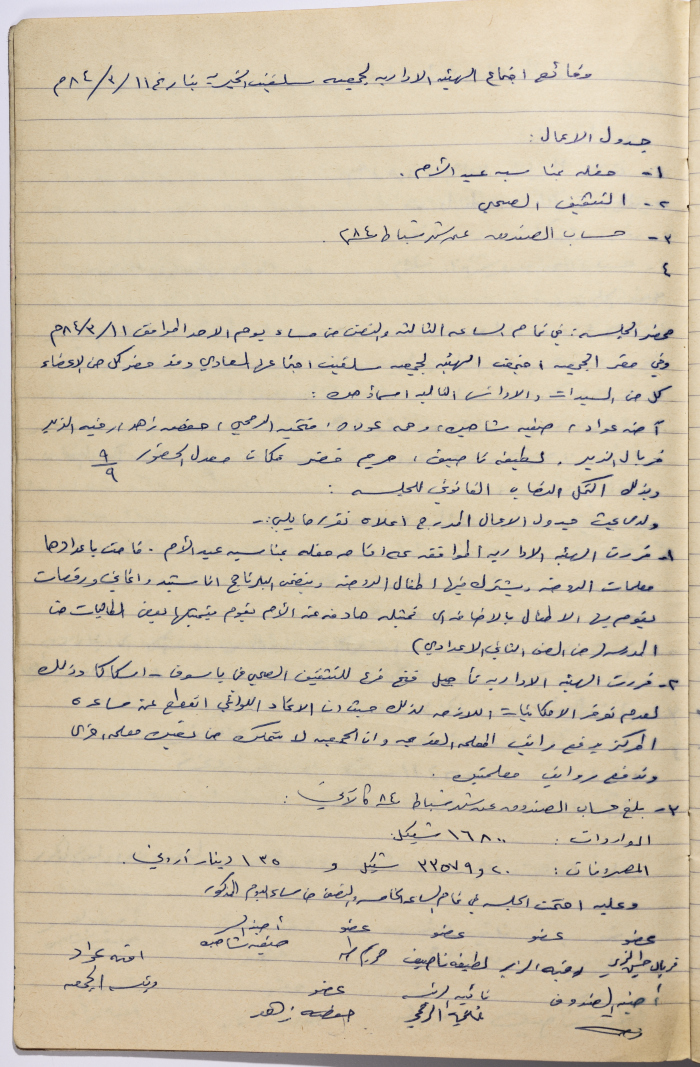 وقائع اجتماع الهيئة الادارية لجمعية سلفيت الخيرية بتاريخ ١١/٣/٨٤م
جدول الاعمال:
١- حفلة بمناسبة عيد الأم.
٢- التثقيف الصحي
٣- حساب الصندوق عن شهر شباط ٨٤م.
٤
محضر الجلسة: في تمام الساعة الثالثة والنصف من مساء يوم الاحد الموافق ١١/٣/٨٤م
وفي مقر الجمعية اجتمعت الهيئة لجمعية سلفيت اجتماعها العادي وقد حضر كل من الاعضاء
كل من السيدات والاوانس التالية اسماؤهن:
آمنه عواد، صفيه شاهين، رحمه عودة، فتحيه الرمحي، حفصه زهد، رقيه الزير
فريال الزير، لطيفه ناصيف، مريم فكان معدل الحضور ٩/٩
وبذلك اكتمل النصاب القانوني للجلسة:
ولدى بحث جدول الاعمال المدرج اعلاه تقرر ما يلي:-
١- قررت الهيئة الادارية الموافقة على اقامة حفلة بمناسبة عيد الأم. قامت باعدادها
معلمات الروضة ويشترك فيها اطفال الروضة ويتضمن البرنامج اناشيد واغاني ورقصات
يقوم بها الاطفال بالاضافة الى تمثيلية هادفة عن الأم يقوم بتمثيلها بعض الطالبات من
المدرسة (من الصف الثاني الاعدادي)
٢- قررت الهيئة الادارية تأجيل فتح فرع للتثقيف الصحي في ياسوف - اسكاكا وذلك
لعدم توفر الامكانيات اللازمة لذلك حيث ان الاتحاد اللوائي انقطع عن مساعدة
المركز بدفع راتب المعلمة القديمة وان الجمعية لا تتمكن من تعيين معلمة اخرى
وتدفع رواتب معلمتين.
٣- بلغ حساب الصندوق عن شهر شباط ٨٤ كالآتي:
الواردات: ١٦٨٠٠ شيكل
المصروفات: ٢٠و٣٣٥٧٩ شيكل و ١٣٥ دينار أردني.
وعليه اختتمت الجلسة في تمام الساعة الخامسة والنصف من مساء اليوم المذكور
عضو عضو عضو عضو أمينة السر
فريال الزير رقيه الزير لطيفه ناصيف مريم صفيه شاهين امنه عواد
أمينة الصندوق نائبة الرئيسة عضو رئيسة الجمعية
فتحية الرمحي حفصه زهد